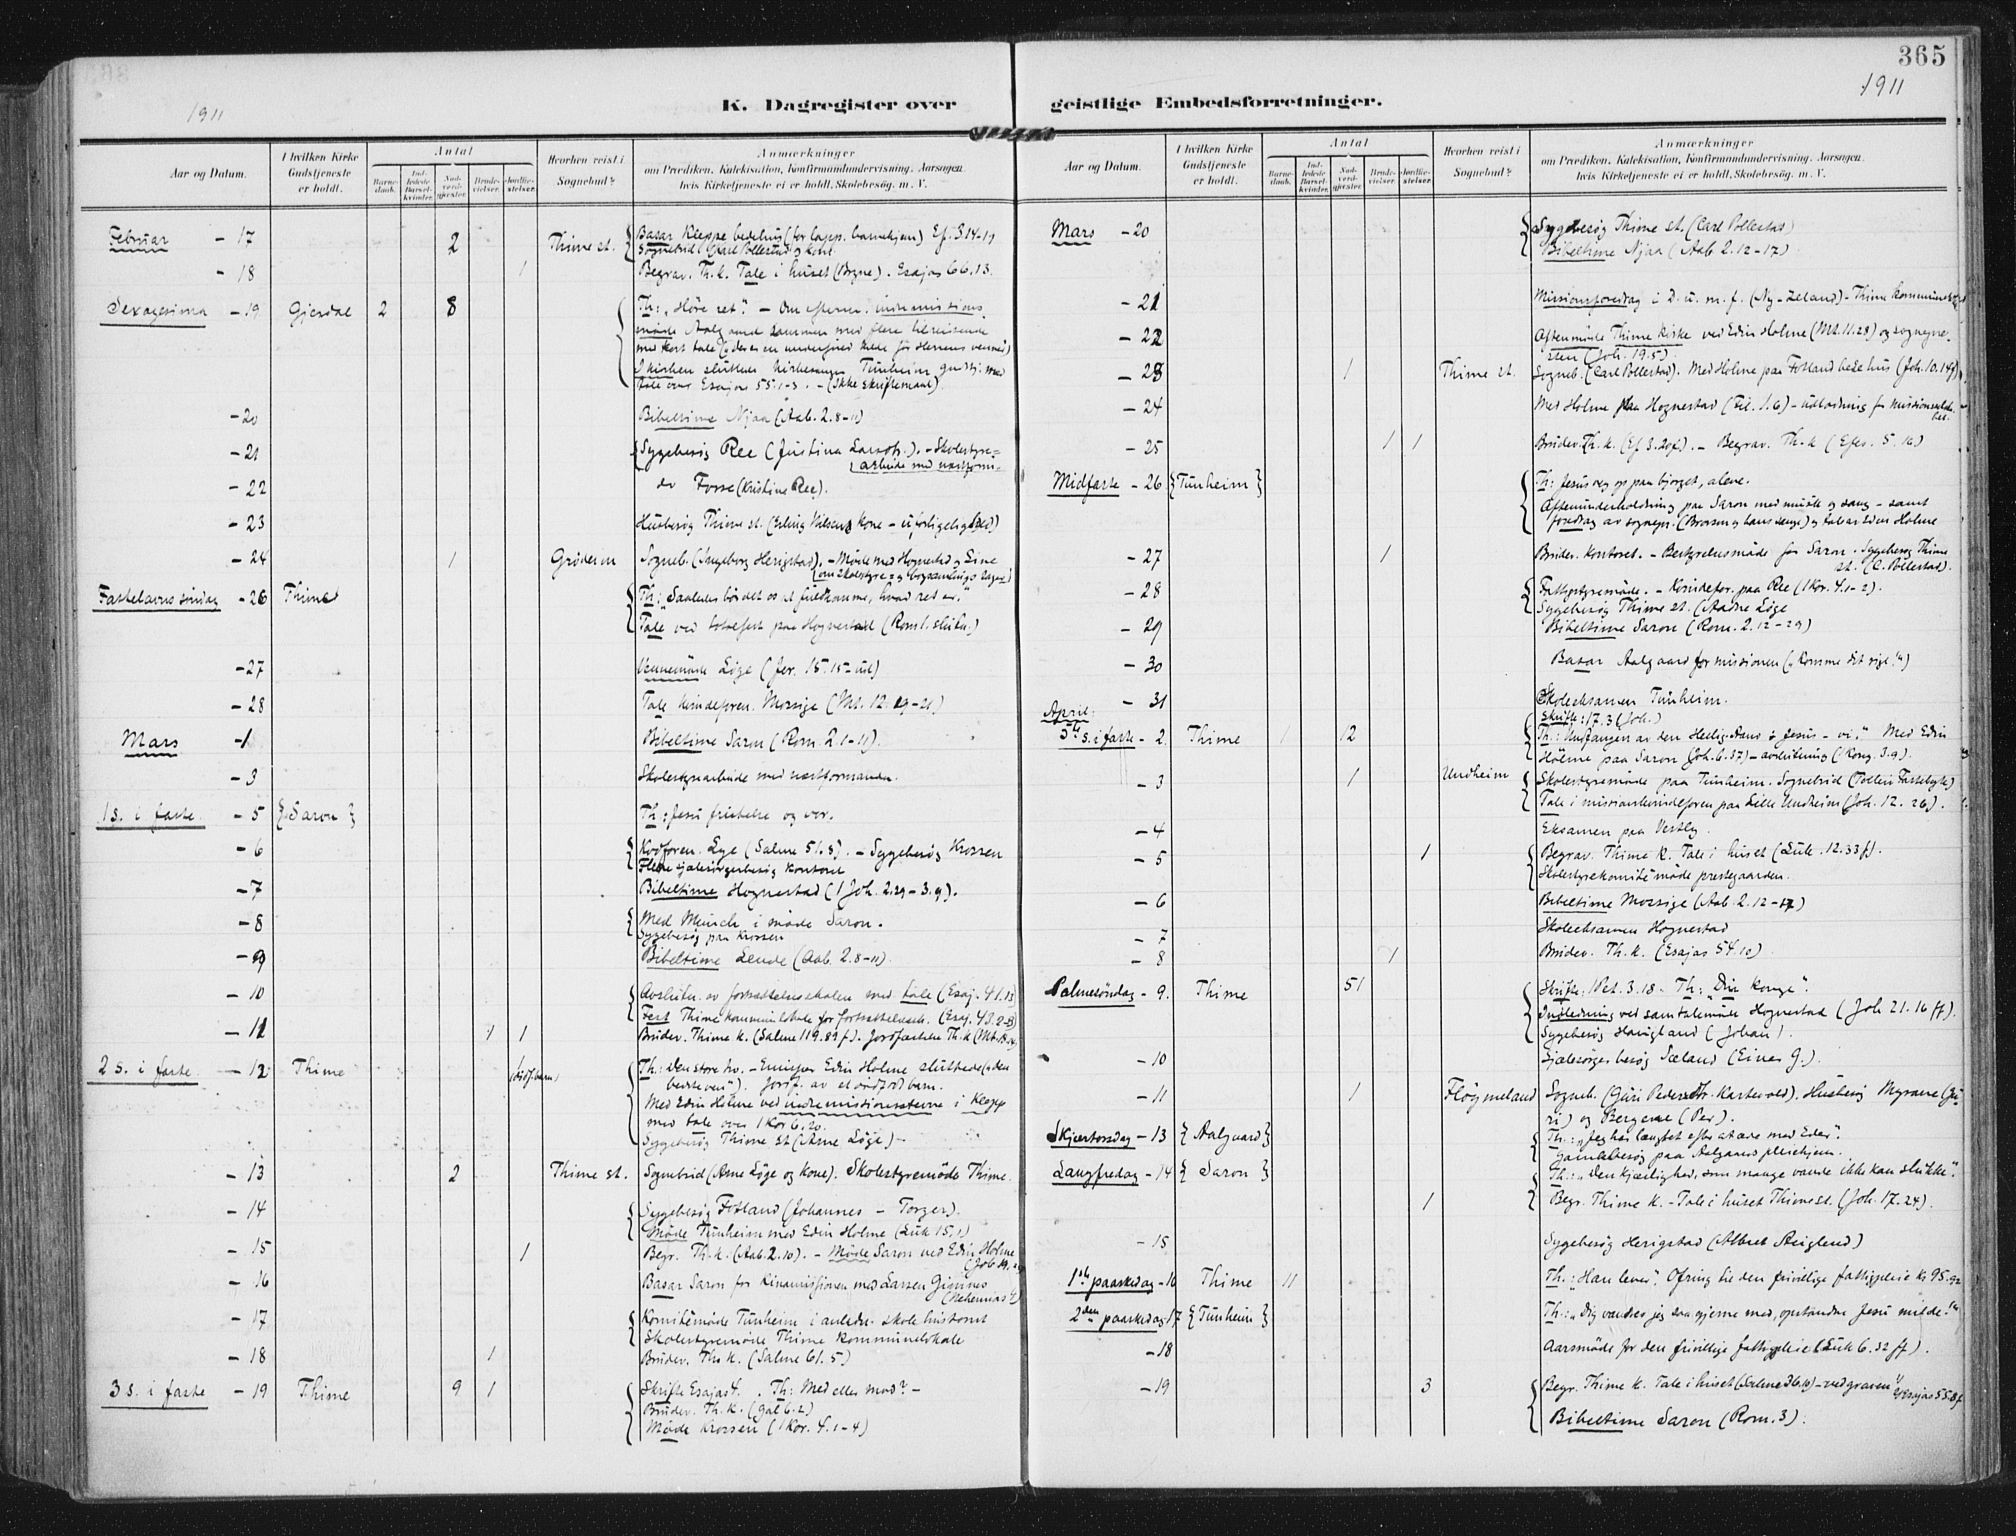 365
1911
1911
K. Dagregister over
geistlige Embedsforretninger.
Aar og Datum.
I hvilken Kirke Gudstjeneste er holdt.
Antal
Barnedaab.
Indledede Barselkvinder.
Nadverdgjester.
Brudevielser.
Jordfæstelser.
Hvorhen reist i Sognebud?
Anmærkninger
om Prædiken, Katekisation, Konfirmandundervisning, Aarsagen,
hvis Kirketjeneste ei er holdt, Skolebesøg, m. V.
Februar – 17 2 Thime st. Basar Kleppe bedehus (for lapp. barnehjem) Ef. 3.14-19
Sognebud (Carl Pollestad og kone
– 18 1 Begrav. Th. k. Tale i huset (Bryne). Esajas 66.13.
Sexagesima – 19 Gjesdal 2 8 Th: „Høre ret". – Om efterm. indremissions
møde Aalgaard sammen med flere tilreisende
med kort tale
I kirken sluttede Tunheim gudstj. med
tale over Esajas 55.1-3. – (Ikke skriftemaal).
– 20 Bibeltime Njaa (Aab. 2.8-11)
– 21 Sygebesøg Ree (Justina Larsdtr.). – Skolestyre=
arbeide med næstformi-
– 22 do Fosse (Kristine Ree).
– 23 Husbesøg Thime st. (Erling Nilsens kone –
– 24 1 Grødeim Sogneb. (Ingeborg Herigstad). – Møde med Hognestad og Line
(om skolestyre= og bogsamlings sager)
Fastelavns søndag – 26 Thime Th: „Saaledes bør det os at fuldkomme, hvad ret er."
Tale ved paa Hognestad (Rom 1.
– 27 Vennemøde Løge (Jer. 15.15-
– 28 Tale kvindeforen. Mossige (Mt. 12.19-21)
Mars – 1 Bibeltime Saron (Rom. 2.1-11).
– 3 Skolestyrearbeide med næstformanden.
1 S. i faste. – 5 { Saron } Th: Jesu fristelse og vor.
– 6 Lye (Salme 51.8). – Sygebesøg Krossen
Flere sjælesørgerbesøg kontoret
– 7 Bibeltime Hognestad (1 Joh. 2.29 – 3.9).
– 8 Med Munch i møde Saron.
Sygebesøg paa Krossen
– 9 Bibeltime Lende (Aab. 2.8-11).
– 10 Avslutn. av fortsættelsesskolen med tale (Esaj. 41.13
Fest Thime kommunelokale for fortsættelsessk. (Esaj. 43.2-3)
– 11 1 1 Brudev. Thime k. (Salme 119.89 f). Jordfæstelse Th. k
2 S. i faste. – 12 Thime Th: Den store tro. – Emissær Edin Holme sluttede („den
bedste ven"). Jordf. av et dødfødt barn.
Med Edin Holme ved indremissionsstevne i Klepp
med tale over 1 Kor 6.20.
Sygebesøg Thime st (Arne Løge) –
– 13 2 Thime st. Sognebud (Arne Løge og kone). Skolestyremøde Thime.
– 14 Sygebesøg Fotland (Johannes – Torger).
Møde Tunheim med Edin Holme (Luk 15.1)
– 15 1 Begr. Th. k. (Aab. 2.10). – Møde Saron ved Edin Holme
– 16 Basar Saron for Kinamissionen med Larsen Gjesnes
(Nehemias 4)
– 17 Komitemøde Tunheim i anledn. skole hus tomt
Skolestyremøde Thime kommunelokale
– 18 1 Brudev. Th. k. (Salme 61.5)
3 S. i faste – 19 Thime 9 1 Skrifte Esajas 4. . Th: Med eller mod? –
Brudev. Th. k. (Gal 6.2)
Møde Krossen (1 Kor. 4.1-4)
Aar og Datum.
I hvilken Kirke Gudstjeneste er holdt.
Antal
Barnedaab.
Indledede Barselkvinder.
Nadverdgjester.
Brudevielser.
Jordfæstelser.
Hvorhen reist i Sognebud?
Anmærkninger
om Prædiken, Katekisation, Konfirmandundervisning, Aarsagen,
hvis Kirketjeneste ei er holdt, Skolebesøg, m. V.
Mars – 20 Sygebesøg Thime st. (Carl Pollestad)
Bibeltime Njaa (Aab 2.12-17)
– 21 Missionsforedrag i D. u. m. f. (Ny-Zeland) – Thime kommunelok.
– 22 Aftenmøde Thime kirke ved Edin Holme (Mt. 11.28) og sognepre-
sten (Joh. 19.5).
– 23 1 Thime st. Sogneb. (Carl Pollestad). Med Holme paa Fotland bedehus (Joh. 10.14f)
– 24 Med Holme paa Hognestad (Fil. 1.6) –
– 25 1 1 Brudev. Th. k. (Ef 3.20f). – Begrav. Th. k (Efes. 5.16)
Midfaste – 26 {Tunheim} Th: Jesus veg op paa bjerget, alene.
Aftenunderholdning paa Saron med musik og sang – samt
foredrag av sognepr. (Brorson og hans sange) og tale av Edin Holme
– 27 1 Brudev. kontoret. – Bestyrelsesmøde for Saron. Sygebesøg Thime
st. (C. Pollestad).
– 28 Fattigstyremøde. – Kvindefor. paa Ree (1 Kor. 4.1-2).
Sygebesøg Thime st. (Andre Løge
– 29 Bibeltime Saron (Rom. 2.12-29)
– 30 Basar Aalgaard for missionen („Komme dit rige!")
– 31 Skoleeksamen Tunheim.
April: Skrifte: 17.3 (Joh.)
5te S. i faste – 2. Thime 1 12 Th: Undfangen av den Hellig-Aand: Jesus – vi." Med Edin
Holme paa Saron (Joh. 6.37) – avslutning (1 Kong. 3.9).
– 3 1 Undheim Skolestyremøde paa Tunheim. Sognebud
Tale i missionskvindeforen paa Lille Undheim (Joh. 12.26).
– 4 Eksamen paa Vestly.
– 5 1 Begrav. Thime k. Tale i huset (Luk. 12.33f).
Skolestyrekomite møde prestegaarden.
– 6 Bibeltime Mossige (Aab. 2.12-17)
– 7 Skoleeksamen Hognestad
– 8 1 Brudev. Th. k. (Esajas 54.10)
Palmesøndag – 9. Thime 51 Skrifte: 1 Pet. 3.18. Th: „Din konge".
Indledning ved samtalemøde Hognestad (Joh 21.16 ff).
Sygebesøg Haugland (Johan).
– 10 Sjælesørger besøg Sæland (Einer G.).
– 11 1 Fløymeland Sogneb. (Guri Pedersdtr. Kartevold). Husbesøg Myrane (Gu-
ri) og Bergene (Per).
Skjærtorsdag – 13 { Aalgaard} Th: „Jeg har længtet efter at æde med Eder".
Gamlebesøg paa Aalgaards pleiehjem.
Langfredag – 14 { Saron } Th: „Den kjærlighed, som mange vande ikke kan slukke".
1 Begr. Thime k. – Tale i huset Thime st. (Joh. 17.24).
– 15 Sygebesøg Herigstad (Albret
1ste paaskedag – 16 Thime 11 Th: „Han lever". Ofring til den frivillige fattigpleie kr 95.92
2den paaskedag – 17 {Tunheim} Th: „Dig vandrer jeg saa gjerne med, opstandne Jesu milde!"
– 18 Aarsmøde for den frivillige fattigpleie (Luk 6.32 ff).
– 19 3 Begr. Thime k. Tale i huset (Salme 36.10) – ved graven Esajas 55.8f
Bibeltime Saron (Rom. 3).